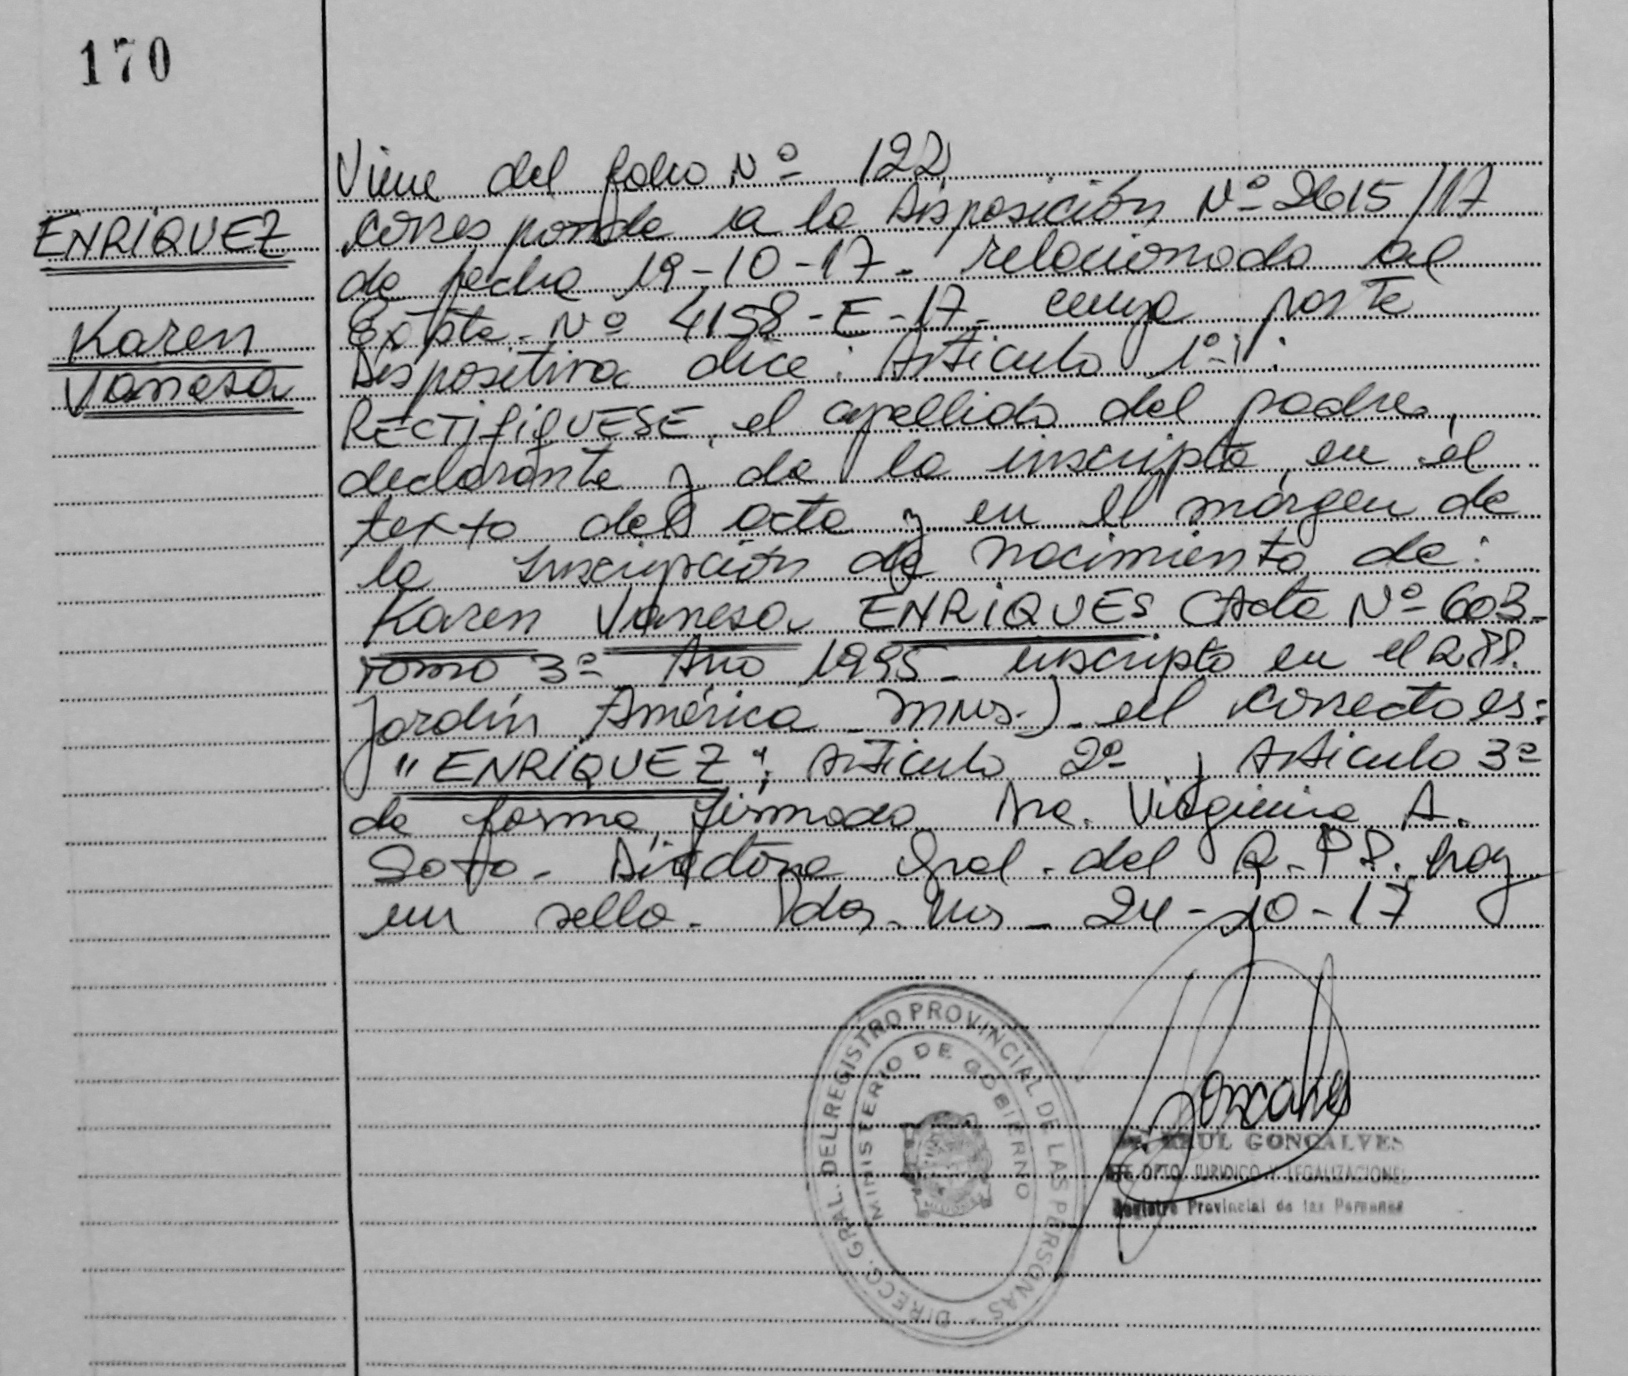 170
Viene del folio Nº 122
ENRIQUEZ
corresponde a la Disposición Nº 2615/17
de fecha 19-10-17- relacionado al
Karen
Expte. Nº 4158-E-17- cuya parte
Vanesa
Dispositiva dice: Artículo 1º:
RECTIFIQUESE, el apellido del padre,
declarante y de la inscripta en el
texto del acta y en el márgen de
la Inscripción de nacimiento de:
Karen Vanesa ENRIQUES (Acta Nº 603-
Tomo 3º Año 1995- inscripta en el R.P.P.
Jardín América Mnes.) el correcto es:
"ENRIQUEZ"; Artículo 2º y Artículo 3º
de forma, firmado Dra. Virginia A.
Soto- Directora Gral. del R.P.P. hay
un sello- Pdas. Mns- 24-10-17
Goncalves
RAUL GONCALVES
DPTO. JURIDICO Y LEGALIZACIONES
Registro Provincial de las Personas
DIRECC. GRAL. DEL REGISTRO PROVINCIAL DE LAS PERSONAS
MINISTERIO DE GOBIERNO